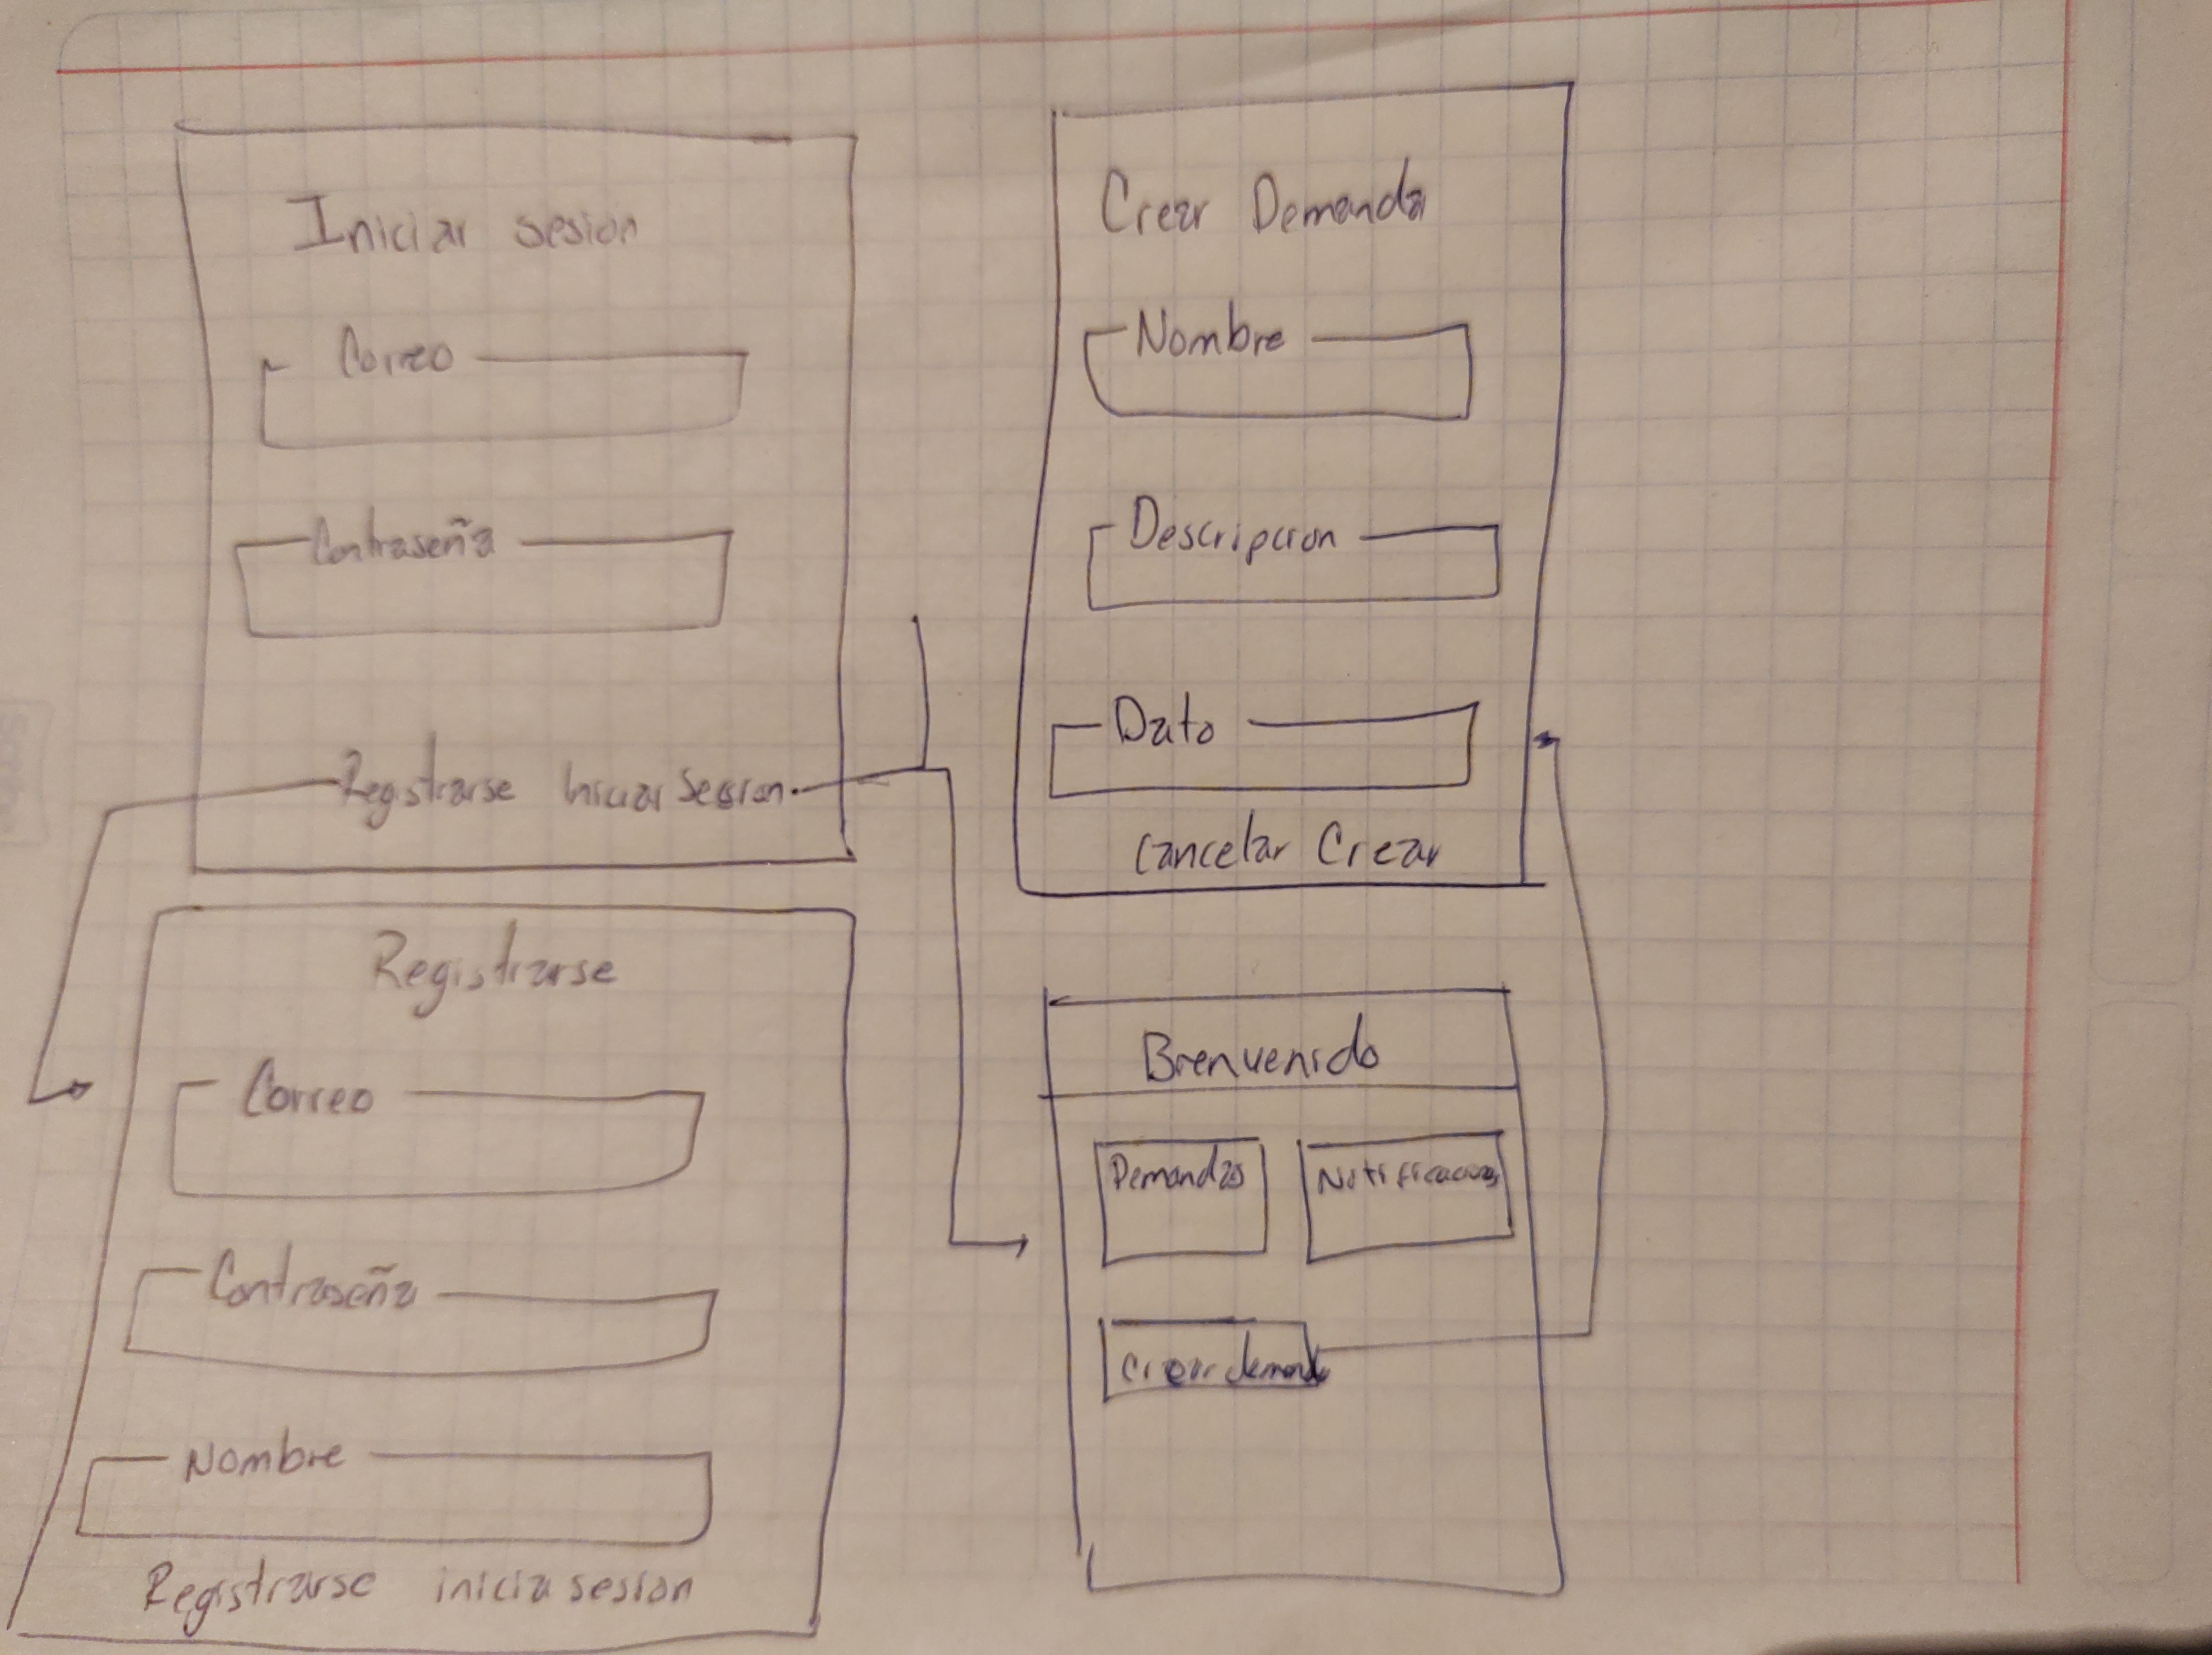 Iniciar sesion
Correo
Contraseña
Registrarse Iniciar Sesion
Registrarse
Correo
Contraseña
Nombre
Registrarse inicia sesion
Crear Demanda
Nombre
Descripcion
Dato
Cancelar Crear
Bienvenido
Demandas Notificaciones
Crear demanda